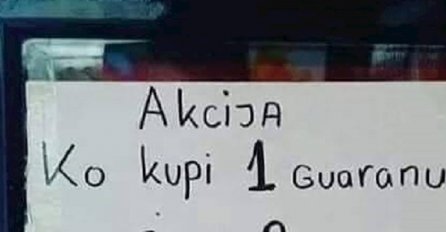 AkcijA
Ko kupi 1 Guaranu